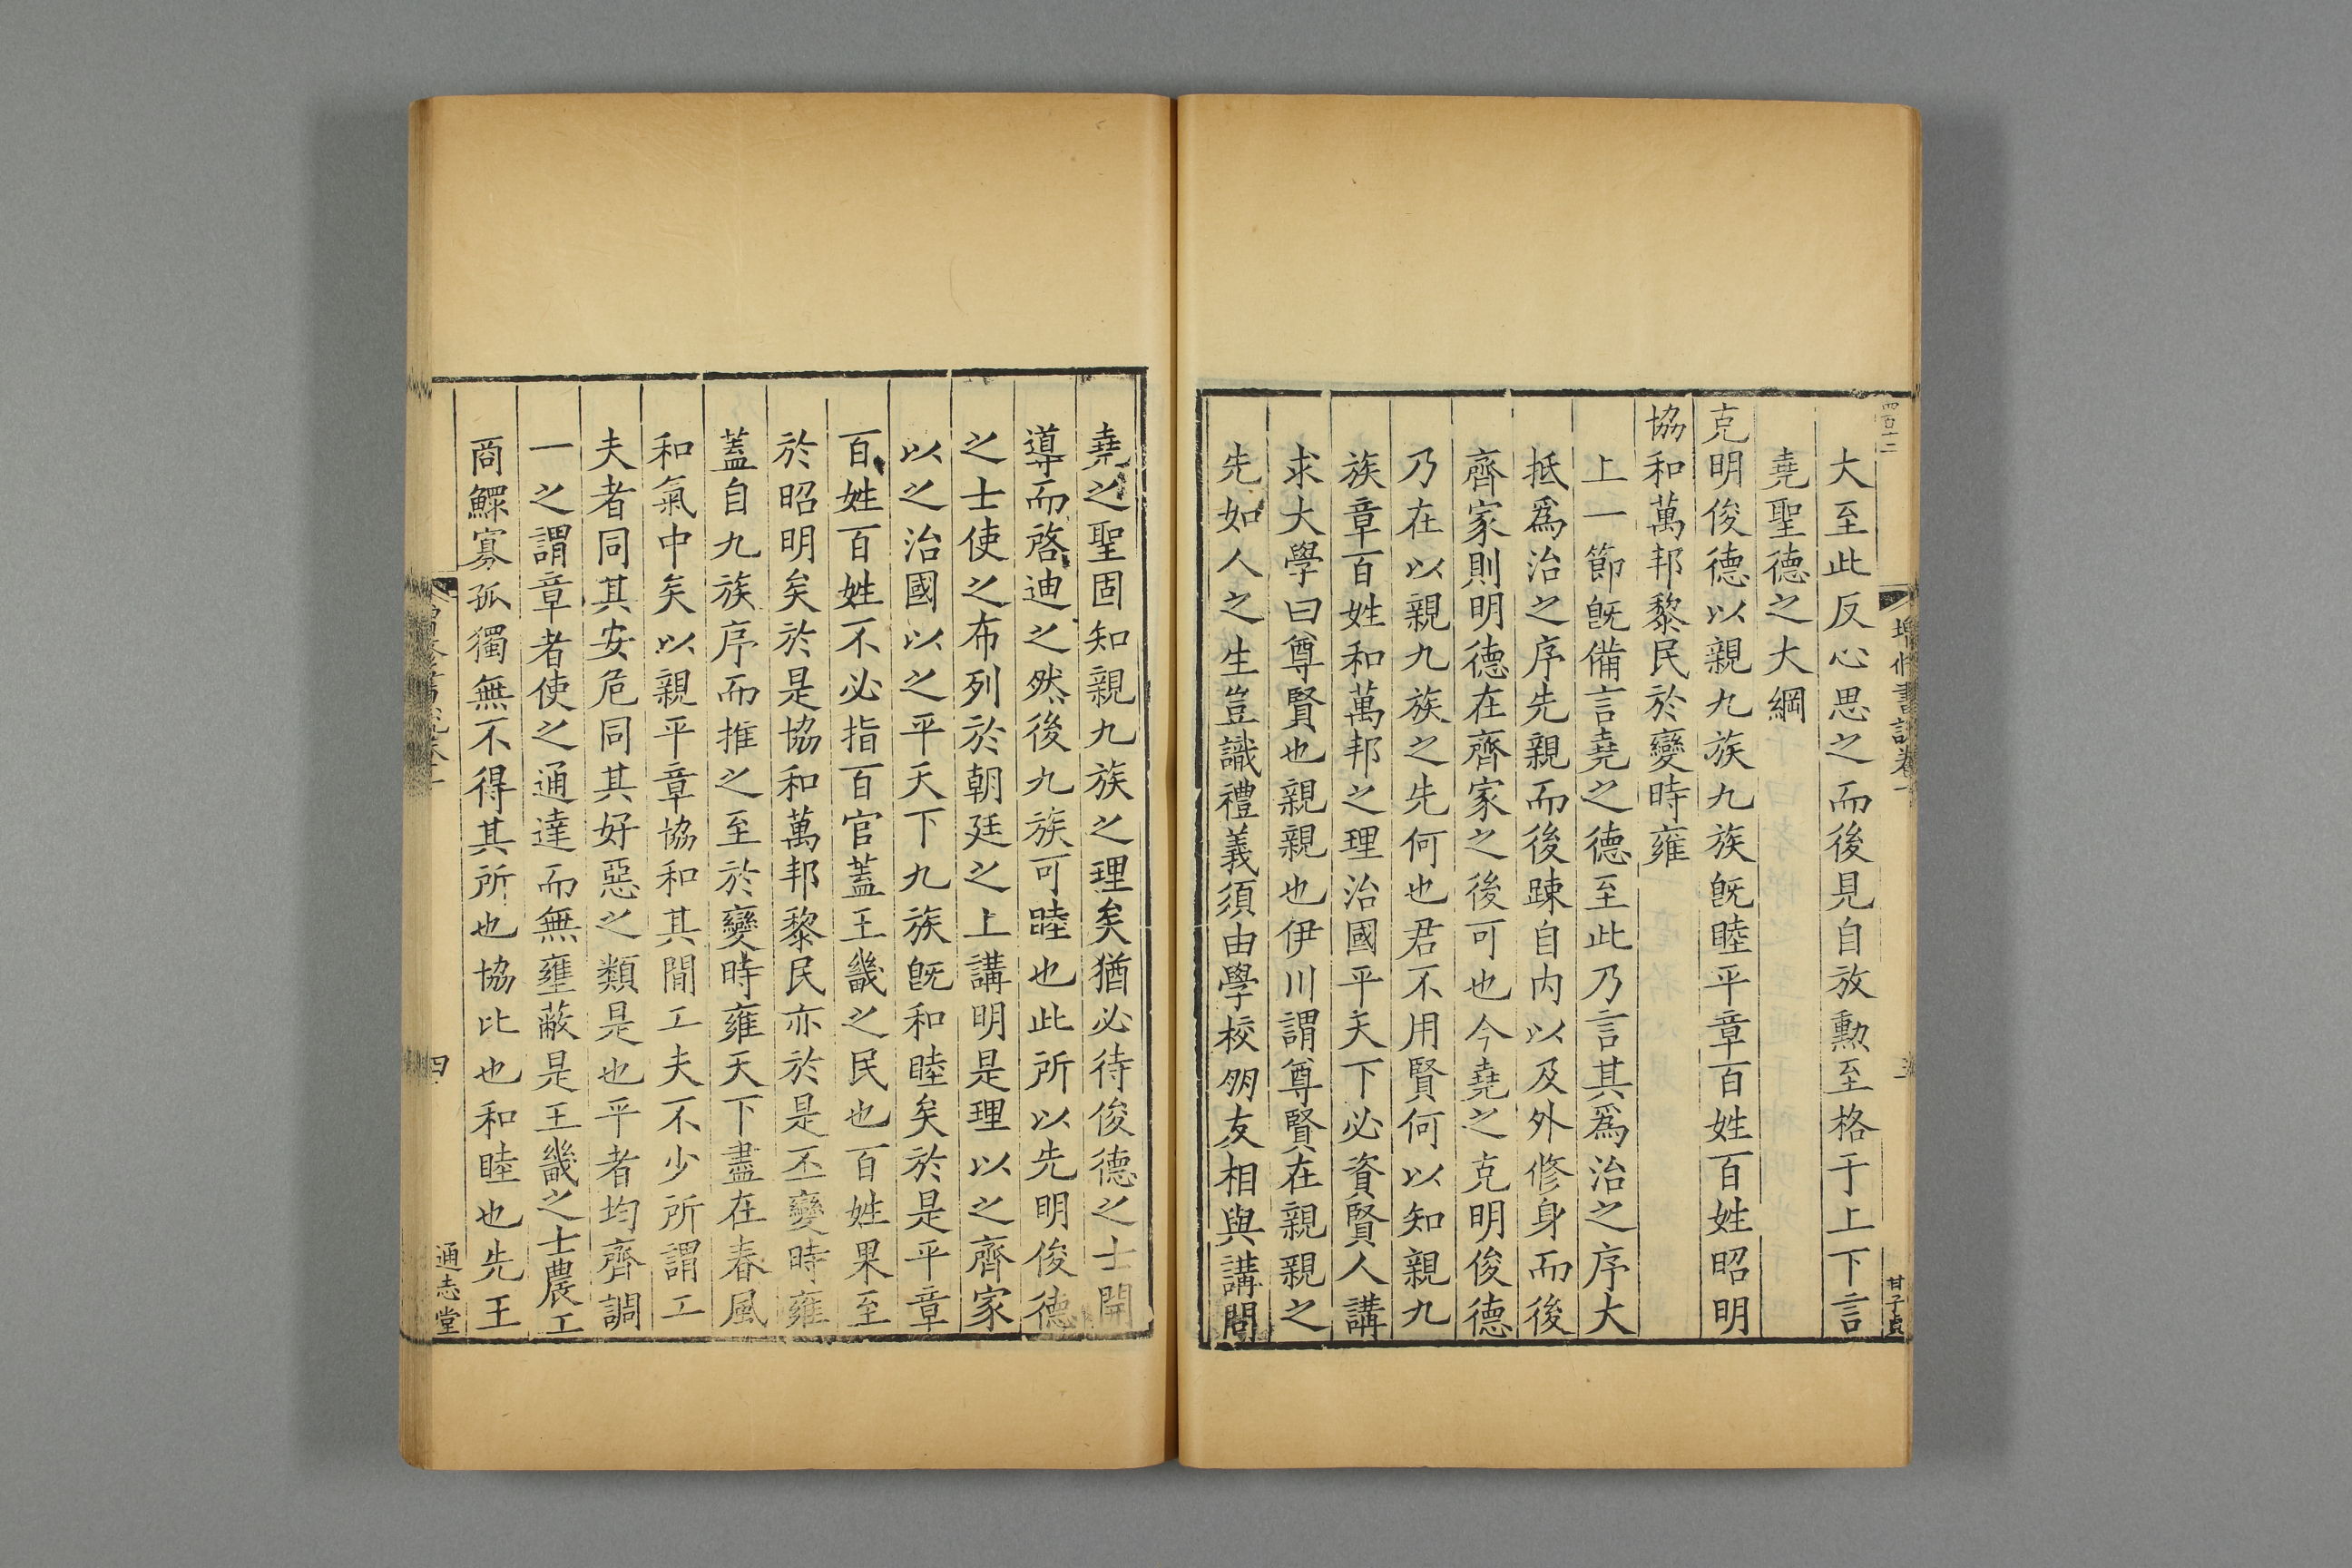 四百十二
增修書說卷一
三
甘子眞
大至此反心思之而後見自放勳至格于上下言
堯聖德之大綱
克明俊德以親九族九族旣睦平章百姓百姓昭明
協和萬邦黎民於變時雍
上一節旣備言堯之德至此乃言其爲治之序大
抵爲治之序先親而後踈自內以及外修身而後
齊家則明德在齊家之後可也今堯之克明俊德
乃在以親九族之先何也君不用賢何以知親九
族章百姓和萬邦之理治國平天下必資賢人講
求大學曰尊賢也親親也伊川謂尊賢在親親之
先如人之生豈識禮義須由學校朋友相與講閱
堯之聖固知親九族之理矣猶必待俊德之士開
導而啓迪之然後九族可睦也此所以先明俊德
之士使之布列於朝廷之上講明是理以之齊家
以之治國以之平天下九族旣和睦矣於是平章
百姓百姓不必指百官蓋王畿之民也百姓果至
於昭明矣於是協和萬邦黎民亦於是丕變時雍
蓋自九族序而推之至於變時雍天下盡在春風
和氣中矣以親平章協和其間工夫不少所謂工
夫者同其安危同其好惡之類是也平者均齊調
一之謂章者使之通達而無壅蔽是王畿之士農工
商鰥寡孤獨無不得其所也協比也和睦也先王
四
通志堂